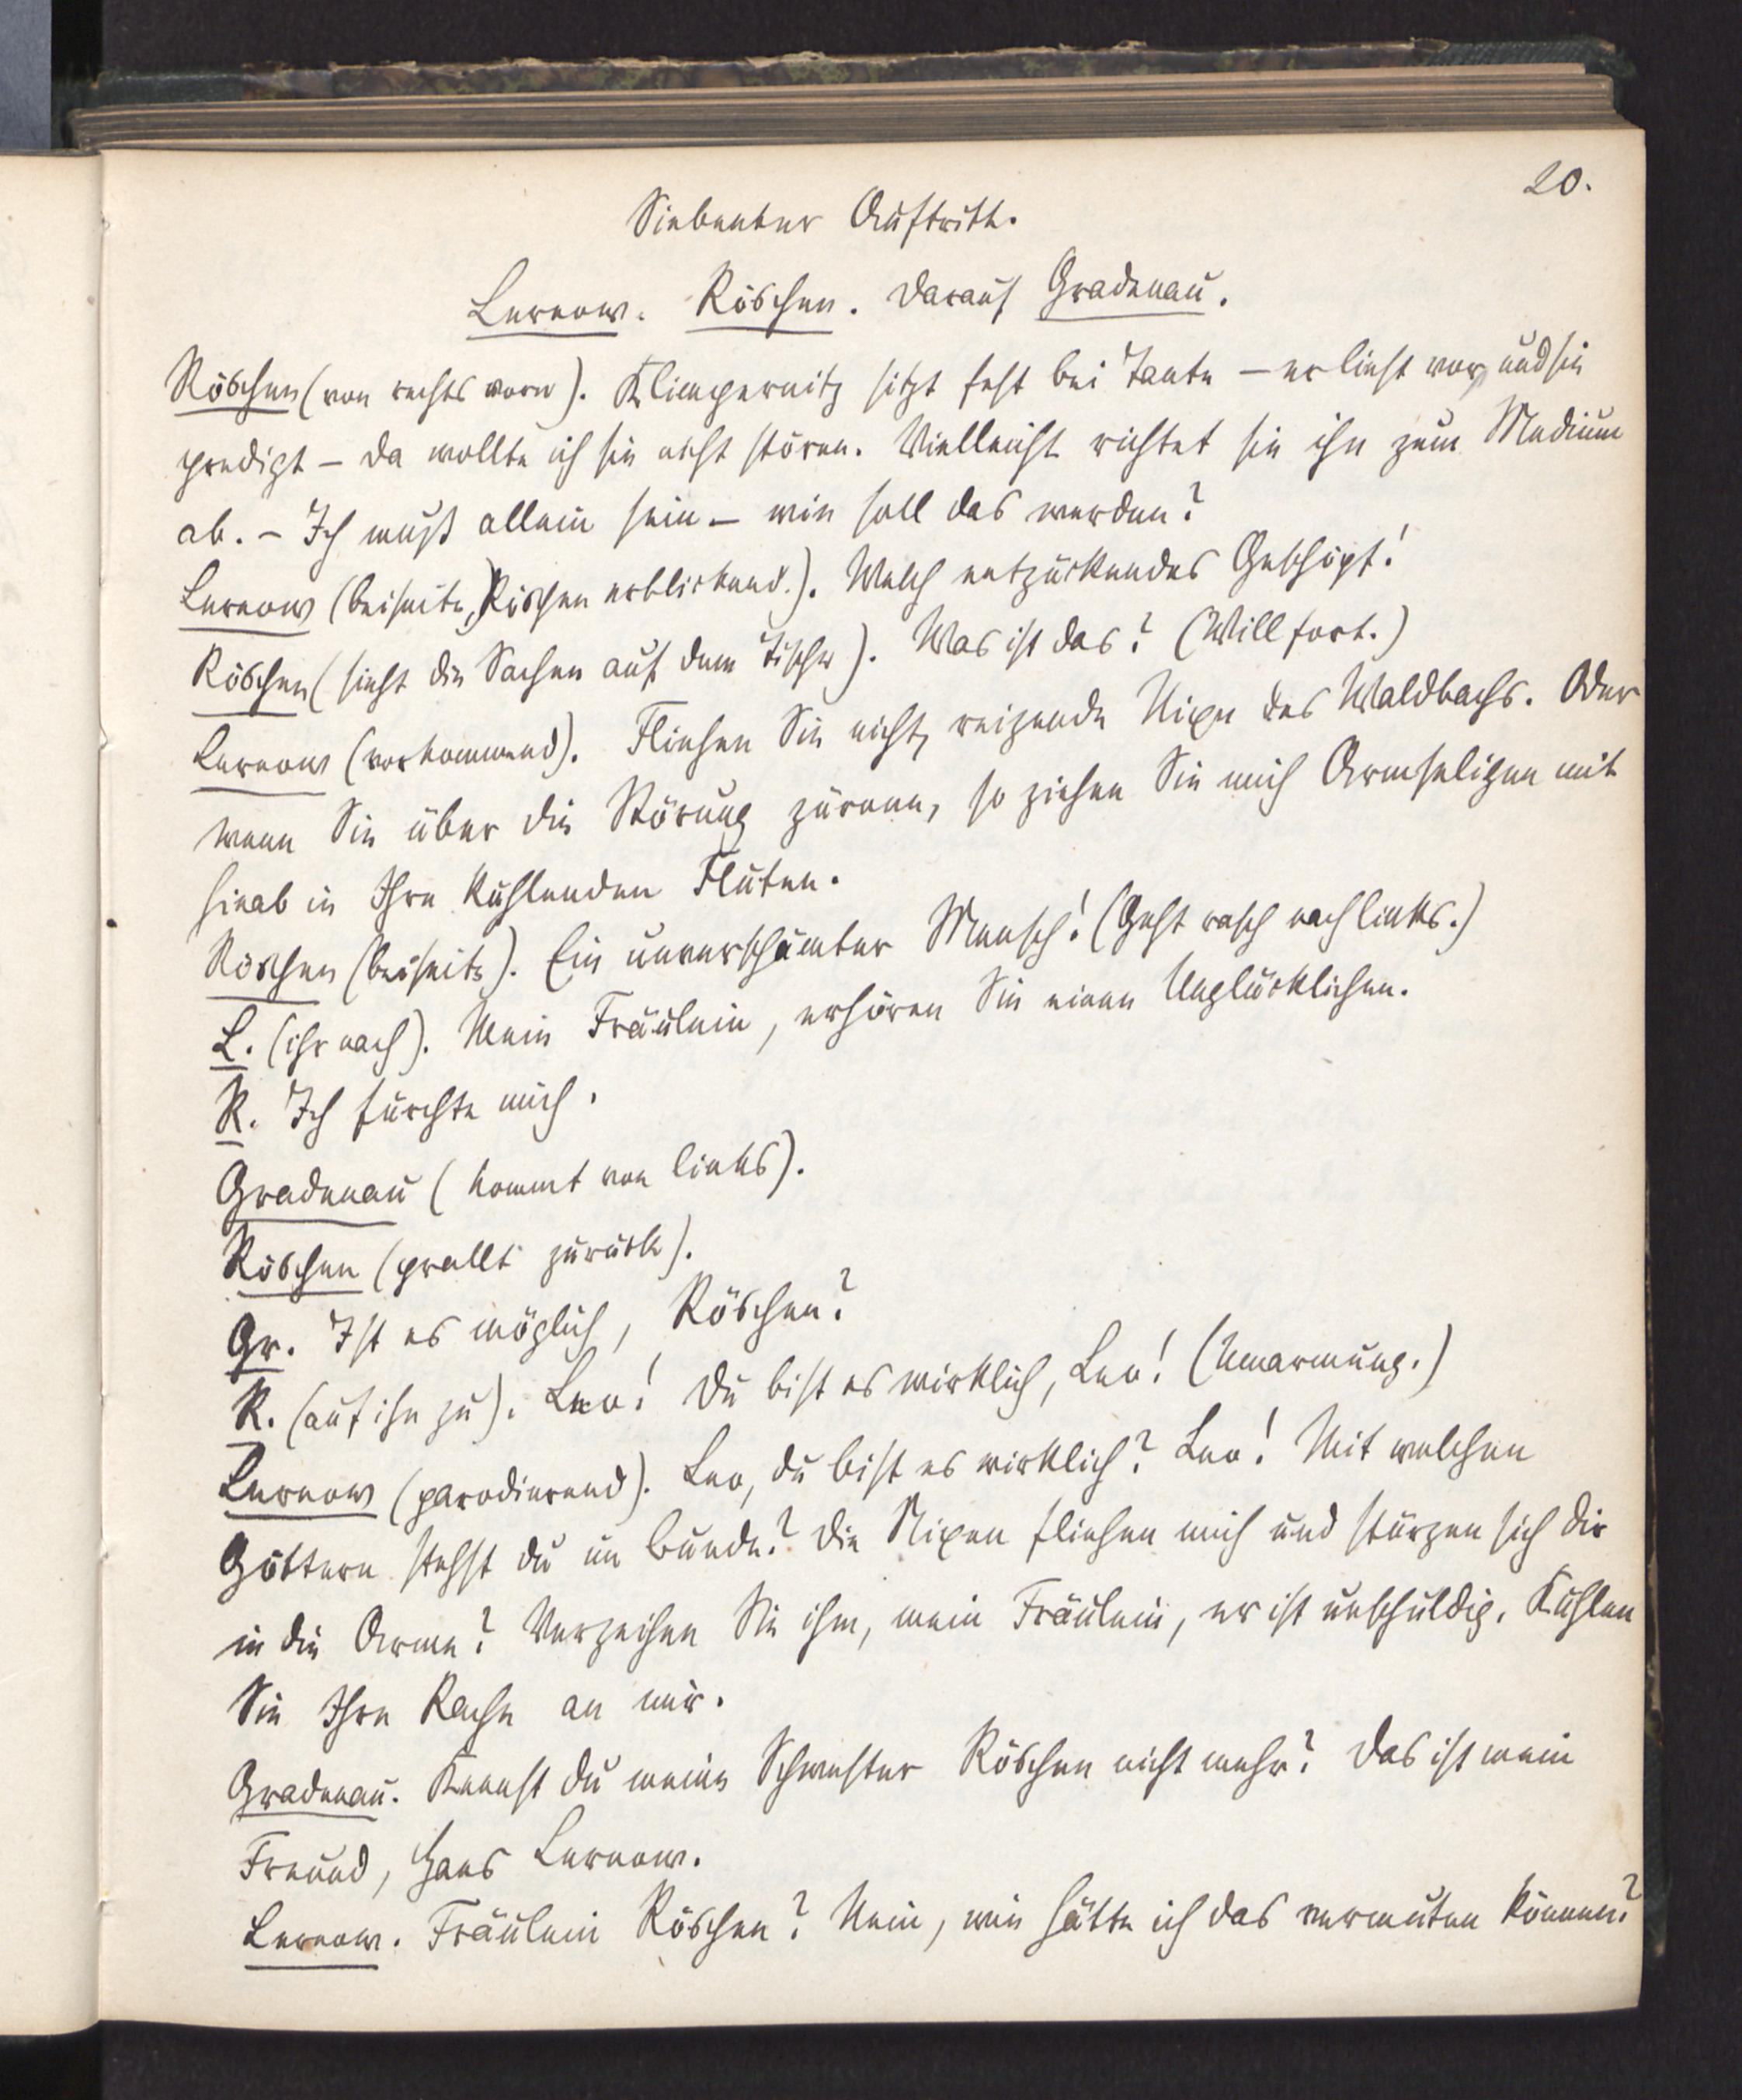 20.
Siebenter Auftritt.
Lernow. Röschen. Darauf Gradenau.
Röschen (von rechts vorn). Klimpernitz sitzt fest bei Tante – er liest vor, und sie
predigt – da wollte ich sie nicht stören. Vielleicht richtet sie ihn zum Medium
ab. – Ich muß allein sein – wie soll das werden?
Lernow (beiseite, Röschen erblickend.). Welch entzückendes Geschöpf!
Röschen (sieht die Sachen auf dem Tische). Was ist das? (Will fort.)
Lernow (vorkommend). Fliehen Sie nicht, reizende Nixe des Waldbachs. Oder
wenn Sie über die Störung zürnen, so ziehen Sie mich Armseligen mit
hinab in Ihre kühlenden Fluten.
Röschen (beiseite). Ein unverschämter Mensch! (Geht rasch nach links.)
L. (ihr nach). Mein Fräulein, erhören Sie einen Unglücklichen.
R. Ich fürchte mich.
Gradenau (kommt von links).
Röschen (prallt zurück).
Gr. Ist es möglich, Röschen?
R. (auf ihn zu). Leo! Du bist es wirklich, Leo! (Umarmung.)
Lernow (parodierend). Leo, du bist es wirklich? Leo! Mit welchen
Göttern stehst du im Bunde? Die Nixen fliehen mich und stürzen sich dir
in die Arme? Verzeihen Sie ihm, mein Fräulein, er ist unschuldig. Kühlen
Sie Ihre Rache an mir.
Gradenau. Kennst du meine Schwester Röschen nicht mehr? Das ist mein
Freund, Hans Lernow.
Lernow. Fräulein Röschen? Nein, wie hätte ich das vermuten können?